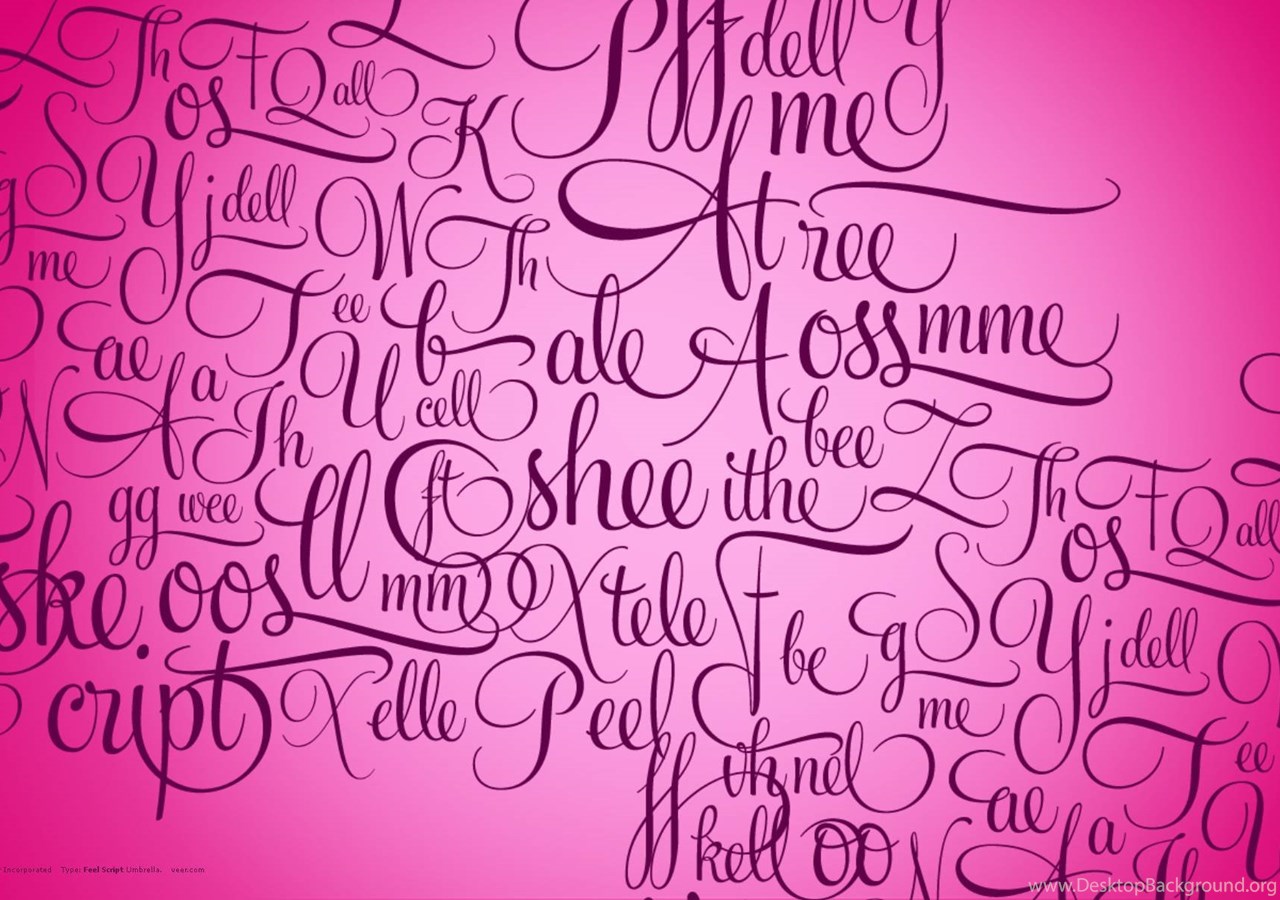 Th F Q all P ff dell y
os K me
S Y j dell W At ree
g me Th
T ee b ale A oss mme
ae a U cell
N A Th bee Z
gg wee ll ft shee ithe Th F Q all
ske oos mm X tele F os
be g S Y j dell
cript X elle P eef me
ff th nel T ee
ae
kell oo N a Th
Incorporated Type: Feel Script Umbrella. veer.com
www.DesktopBackground.org